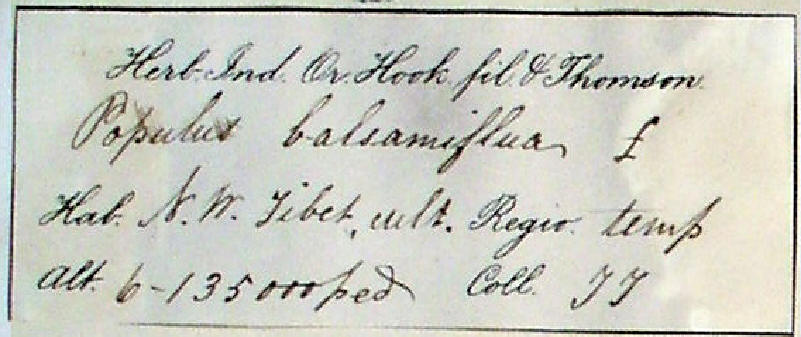 Herb. Ind. Or. Hook. fil. & Thomson.
Populus balsamiflua £
Hab. N. W. Tibet, cult. Regio. temp
Alt. 6-135000 ped Coll. TT